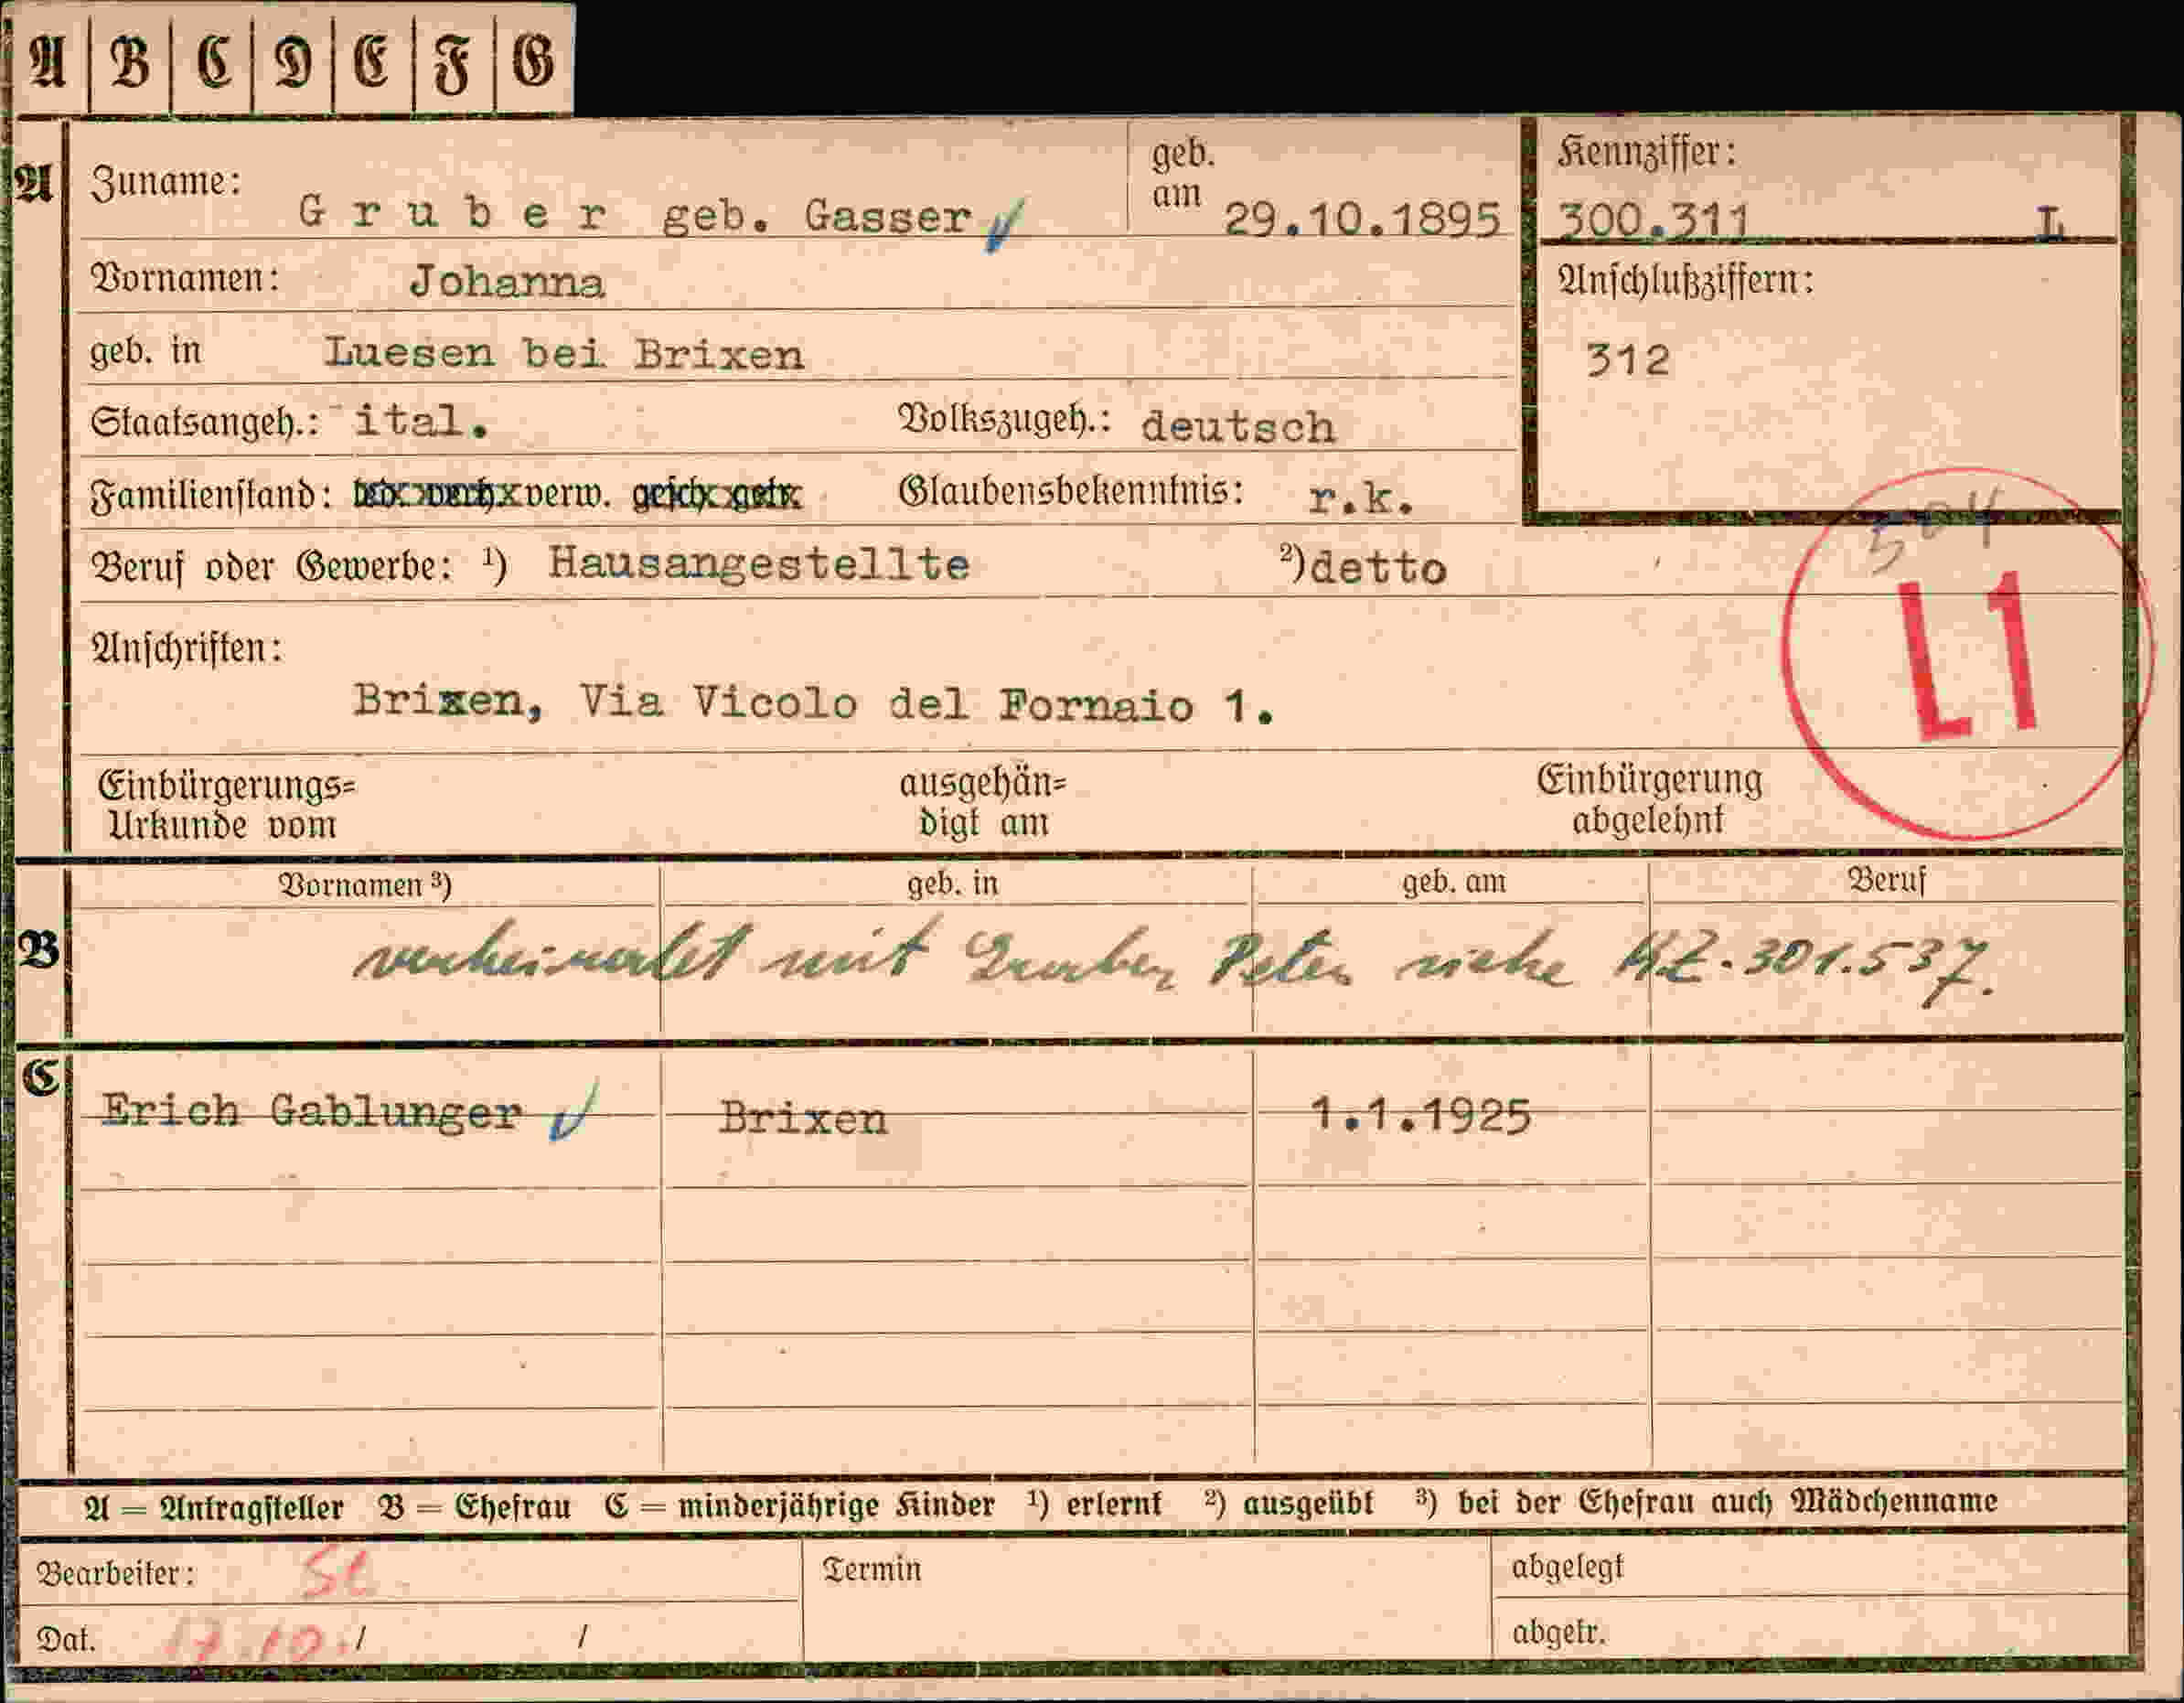 A B C D E F G
A
Zuname: Gruber geb. Gasser
geb. am 29.10.1895
Kennziffer:
300.311 L
Vornamen: Johanna
Anschlußziffern:
312
geb. in Luesen bei Brixen
Staatsangeh.: ital. Volkszugeh.: deutsch
Familienstand: led. verh. verw. gesch. getr. Glaubensbekenntnis: r.k.
504
Beruf oder Gewerbe: ¹) Hausangestellte ²) detto
L1
Anschriften:
Brixen, Via Vicolo del Fornaio 1.
Einbürgerungs=
Urkunde vom
ausgehän=
digt am
Einbürgerung
abgelehnt
Vornamen ³) geb. in geb. am Beruf
B
verheiratet mit Gruber Peter siehe KZ. 301.537.
C
Erich Gablunger Brixen 1.1.1925
A = Antragsteller B = Ehefrau C = minderjährige Kinder ¹) erlernt ²) ausgeübt ³) bei der Ehefrau auch Mädchenname
Bearbeiter:
Termin
abgelegt
Dat. 17.10. / /
abgetr.